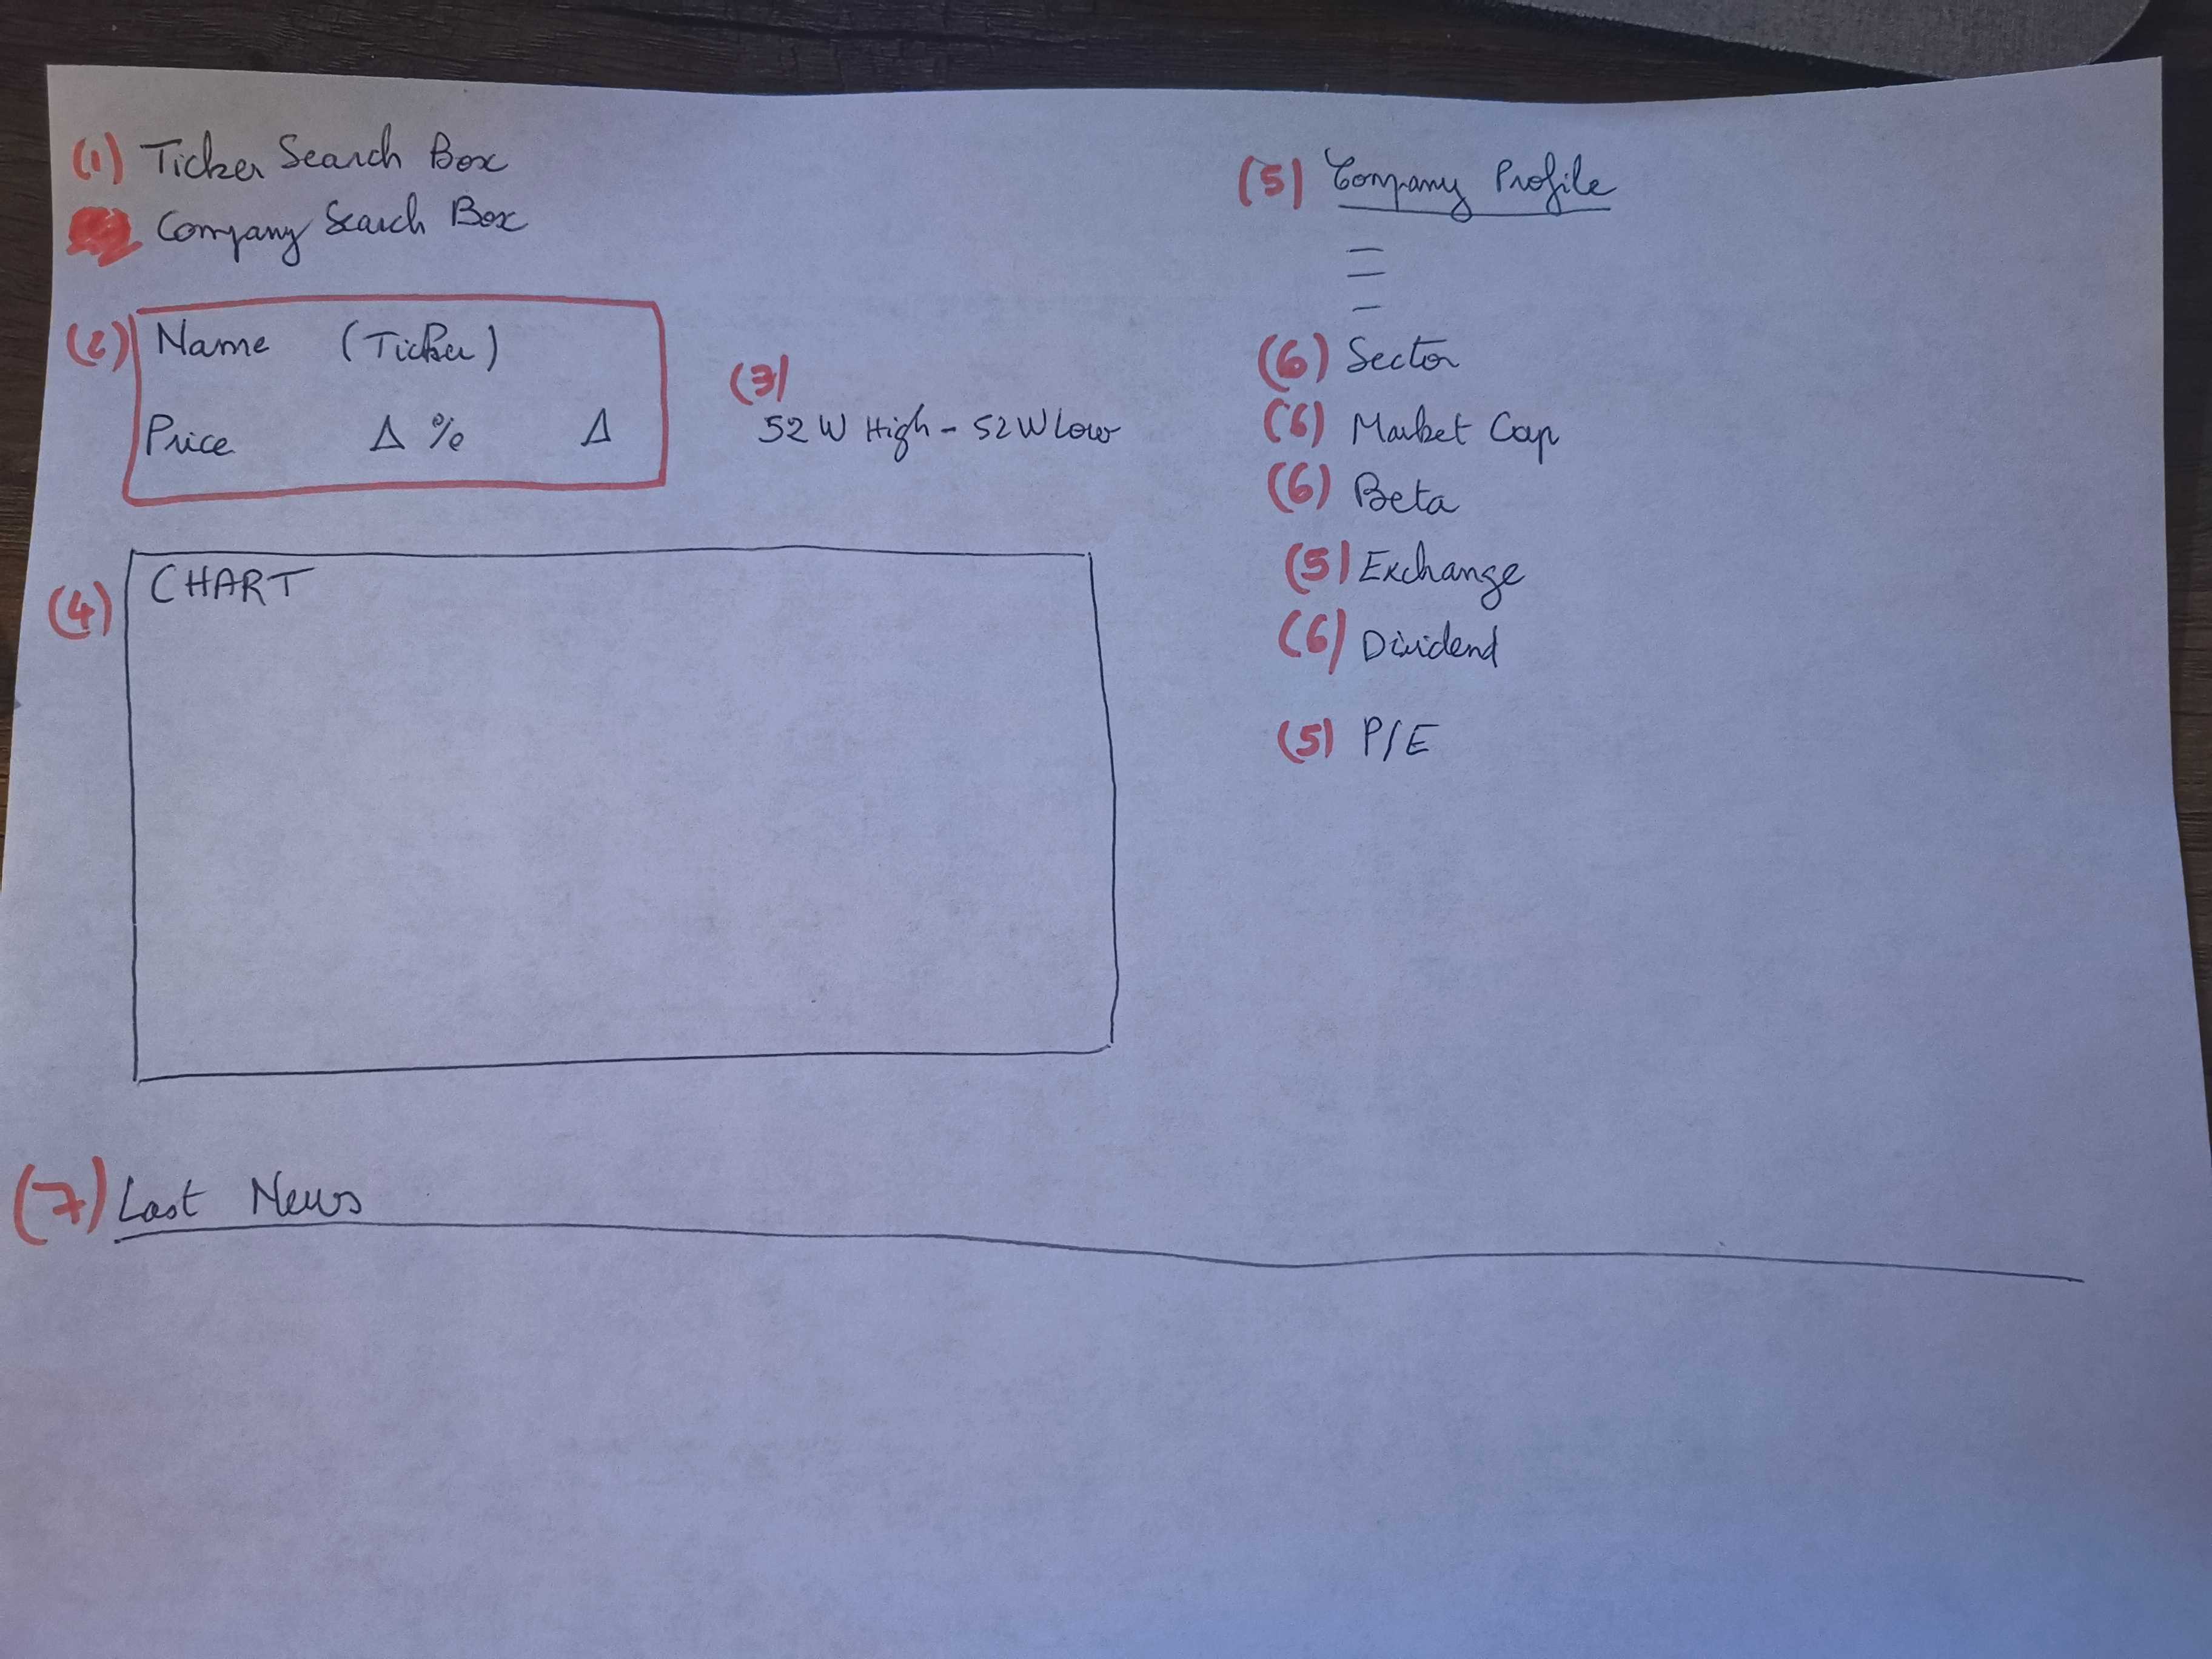 (1) Ticker Search Box
Company Search Box
(2) Name (Ticker)
Price Δ % Δ
(3)
52 W High - 52 W Low
(4) CHART
(5) Company Profile
(6) Sector
(6) Market Cap
(6) Beta
(5) Exchange
(6) Dividend
(5) P/E
(7) Last News